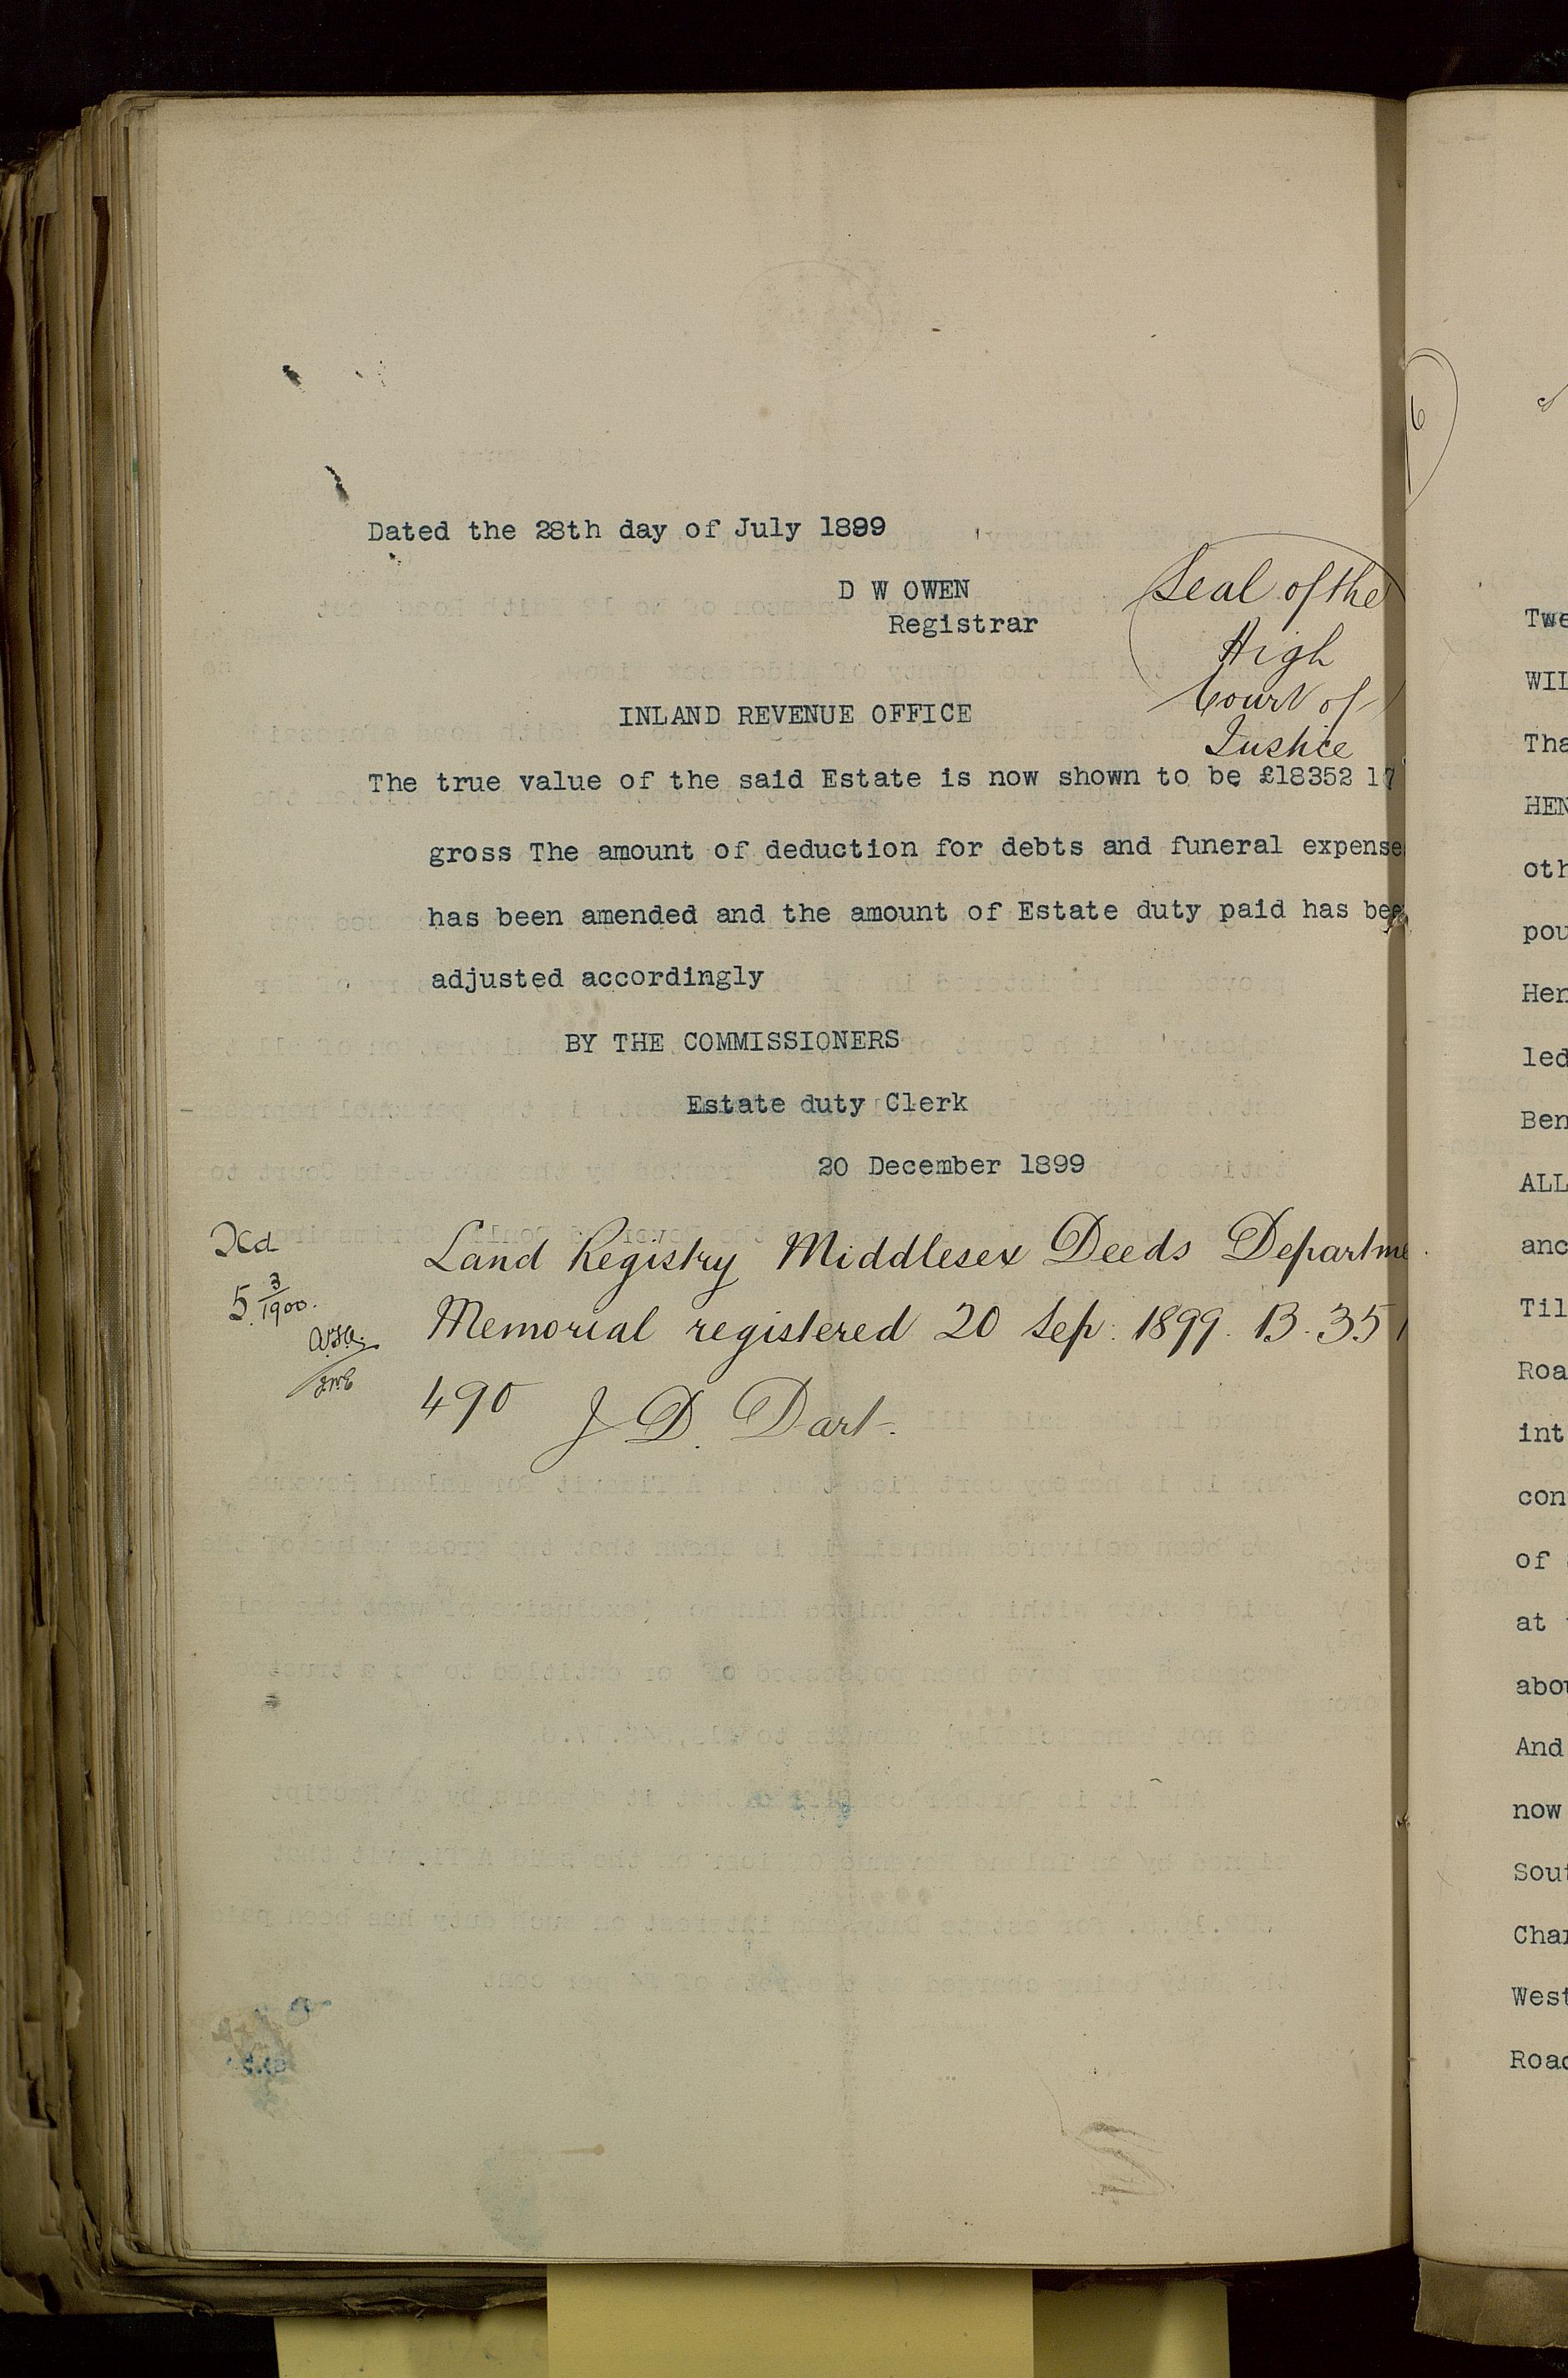 Dated the 28th day of July 1899
D W OWEN
Registrar
Seal of the
High
Court of
Justice
INLAND REVENUE OFFICE
The true value of the said Estate is now shown to be £18352 17
gross The amount of deduction for debts and funeral expense
has been amended and the amount of Estate duty paid has bee
adjusted accordingly
BY THE COMMISSIONERS
Estate duty Clerk
20 December 1899
Xd
5 3/1900.
Land Registry Middlesex Deeds Departme
Memorial registered 20 Sep: 1899. B. 35
490 J D. Dart.
6
Twe
WIL
Tha
HEN
oth
pou
Hen
led
Ben
ALL
anc
Til
Roa
int
con
of
at
abou
And
now
Sout
Char
West
Road